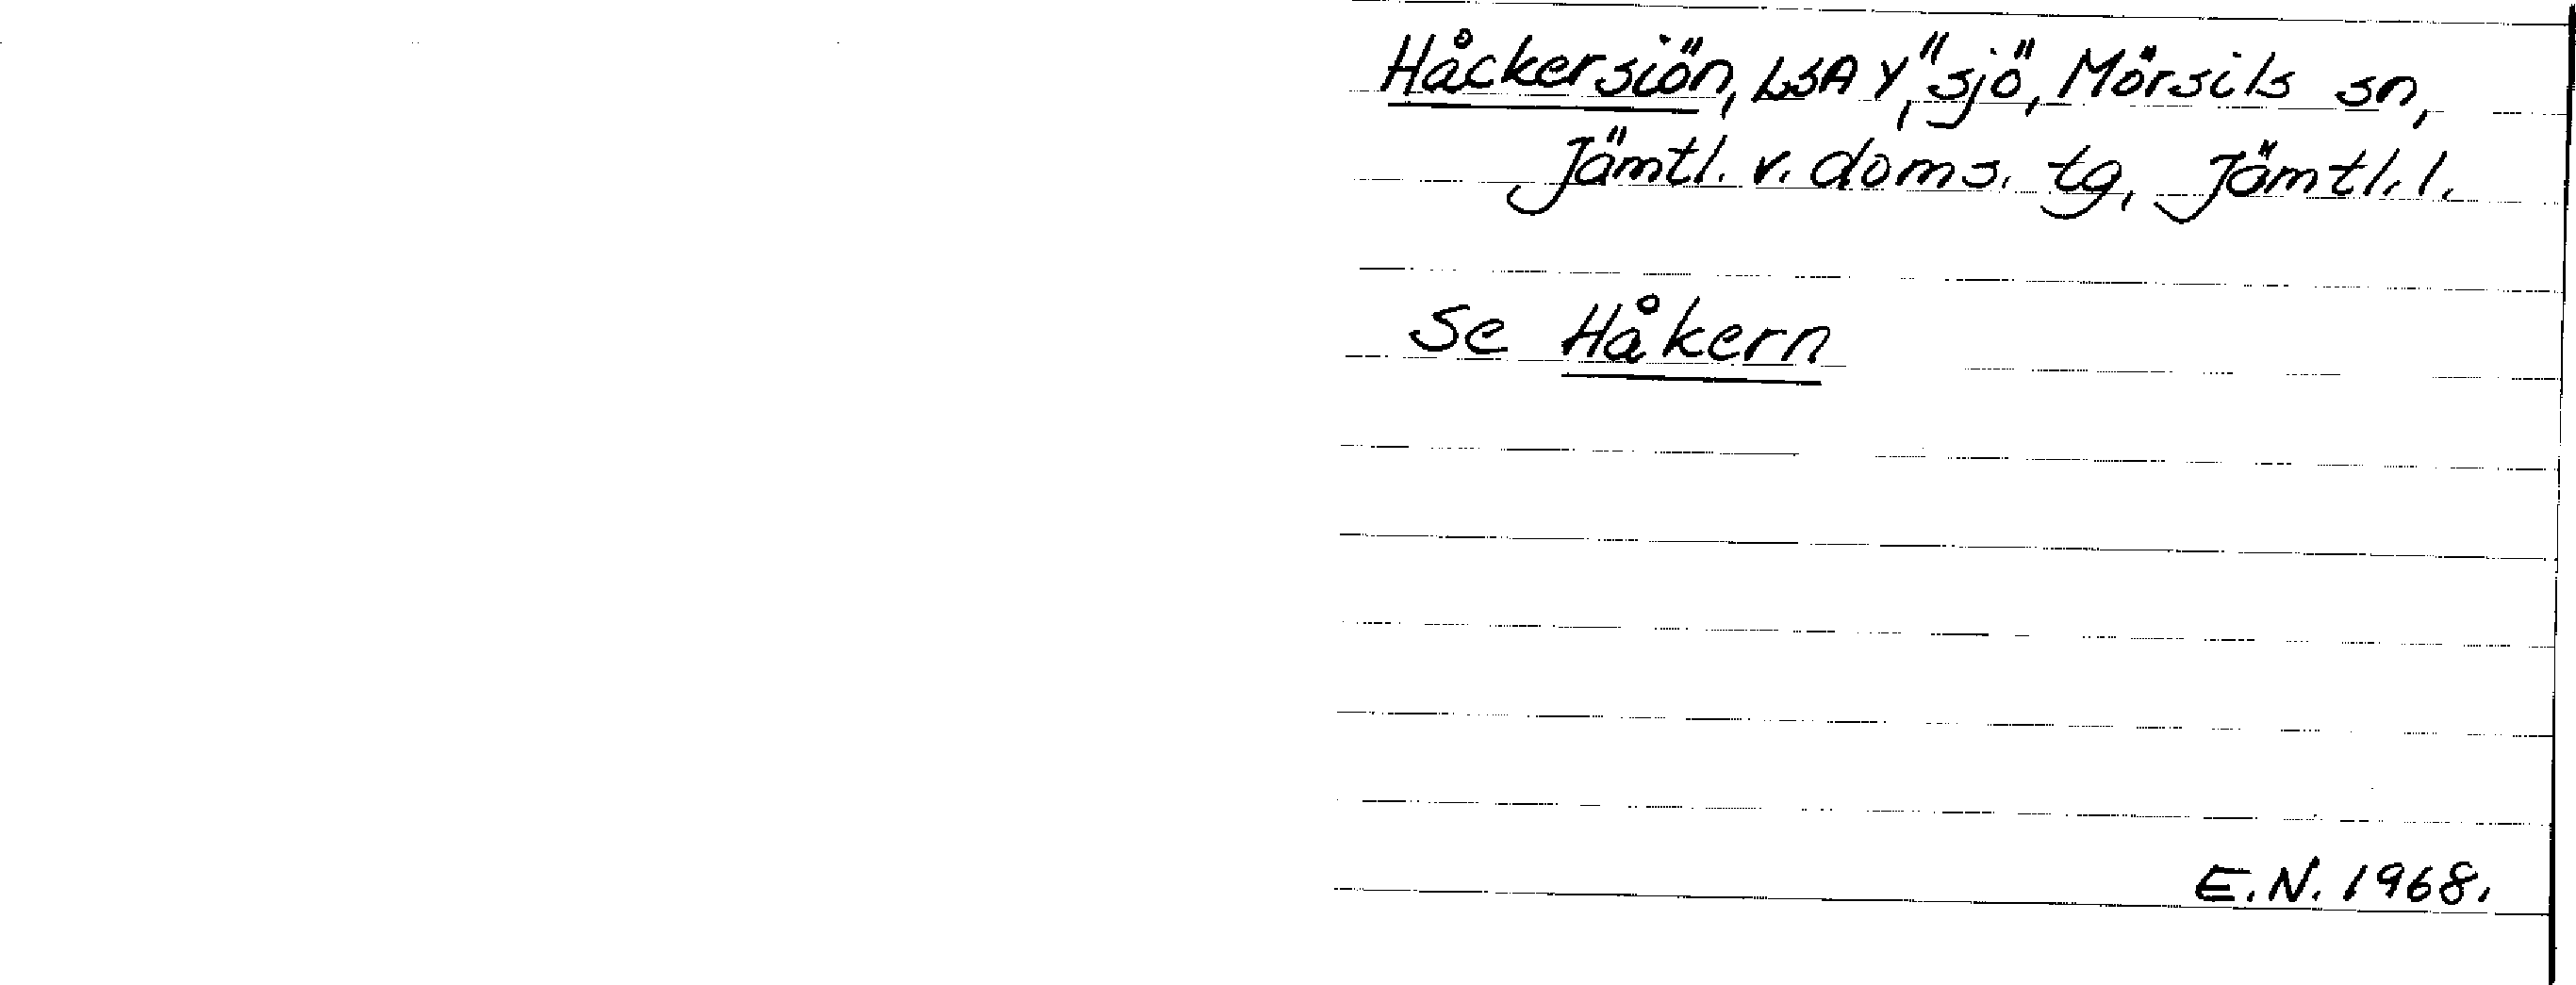 Håckersiön, LSA Y, "sjö", Mörsils sn,
Jämtl. v. doms. tg, Jämtl. l.
Se Håkern
E.N. 1968.